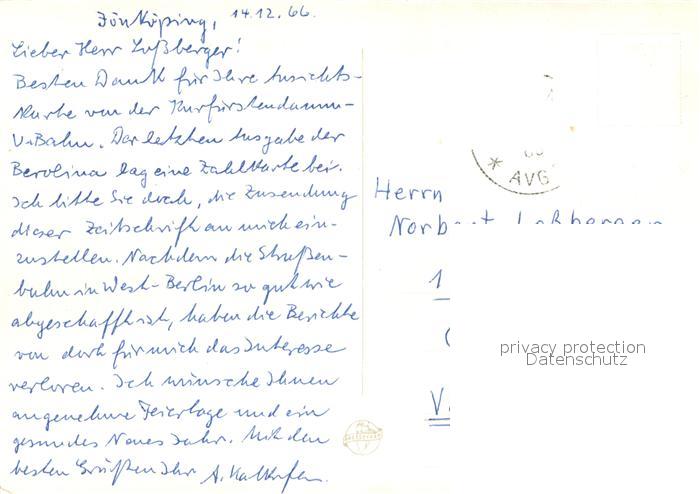 Jönköping, 14.12.66.
Lieber Herr Loßberger!
Besten Dank für Ihre Ansichts-
karte von der Kurfürstendamm-
U-Bahn. Der letzten Ausgabe der
Berolina lag eine Zahlkarte bei.
Ich bitte Sie doch, die Zusendung
dieser Zeitschrift an mich ein-
zustellen. Nachdem die Straßen-
bahn in West-Berlin so gut wie
abgeschafft ist, haben die Berichte
von dort für mich das Interesse
verloren. Ich wünsche Ihnen
angenehme Feiertage und ein
gesundes Neues Jahr. Mit den
besten Grüßen Ihr A.
* AVG
Herrn
Norbert Loßberger
1
privacy protection
Datenschutz